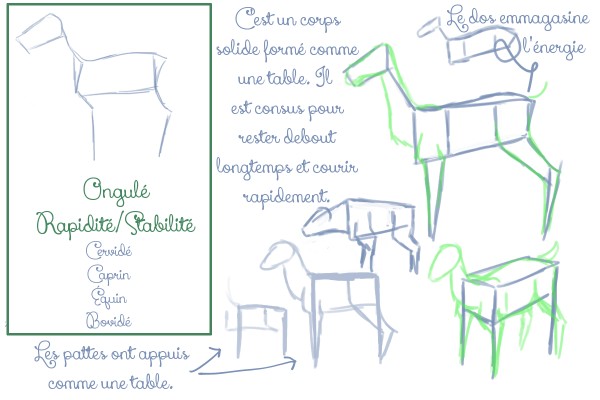 Ongulé
Rapidité/Stabilité
Cervidé
Caprin
Équin
Bovidé
C'est un corps
solide formé comme
une table. Il
est consus pour
rester debout
longtemps et courir
rapidement.
Le dos emmagasine
l'énergie
Les pattes ont appuis
comme une table.